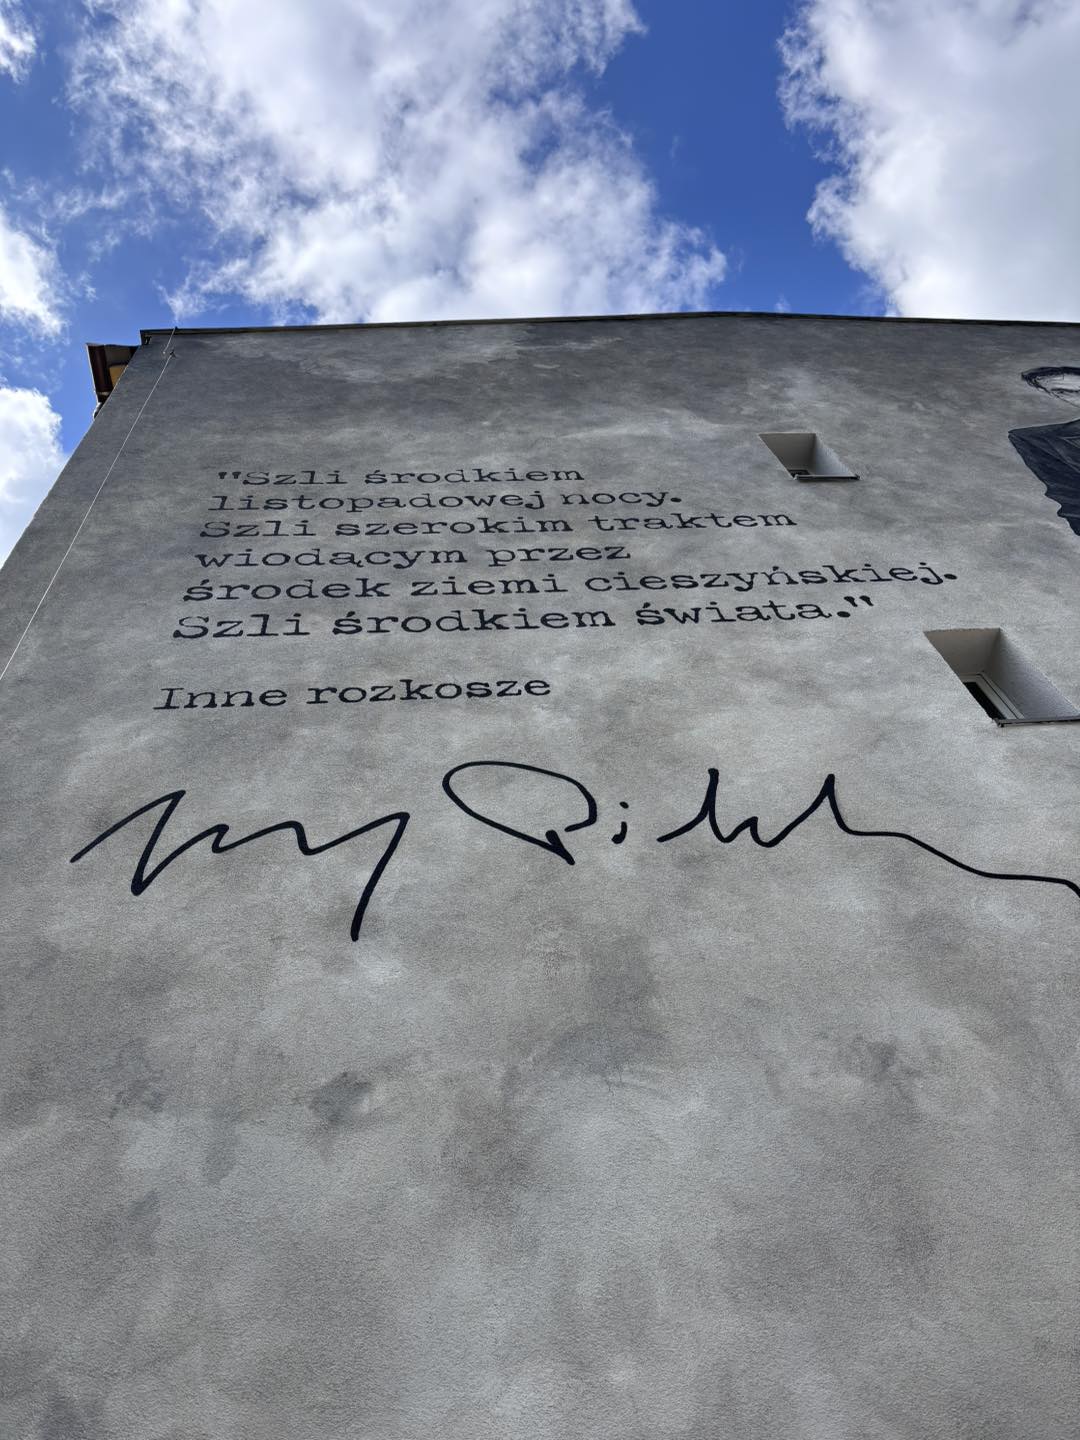 "Szli środkiem
listopadowej nocy.
Szli szerokim traktem
wiodącym przez
środek ziemi cieszyńskiej.
Szli środkiem świata."
Inne rozkosze